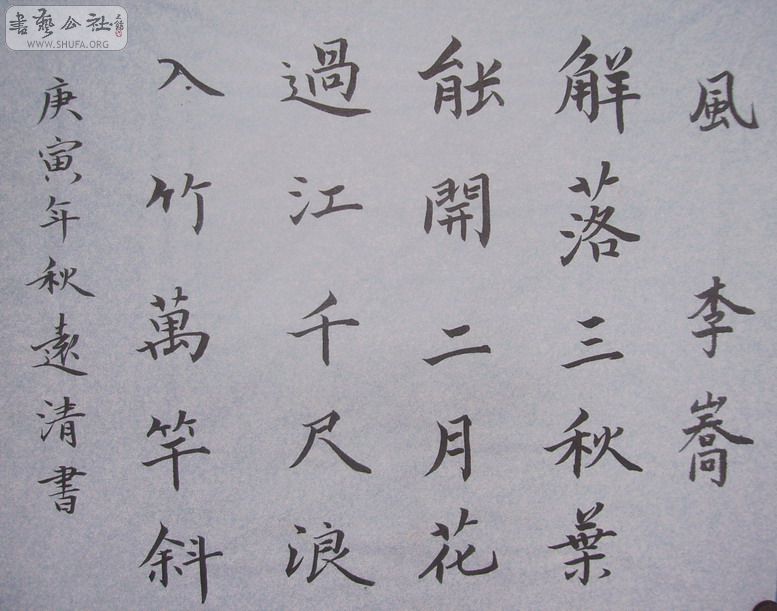 風 李嶠
解落三秋葉
能開二月花
過江千尺浪
入竹萬竿斜
庚寅年秋遠清書
書藝公社
WWW.SHUFA.ORG